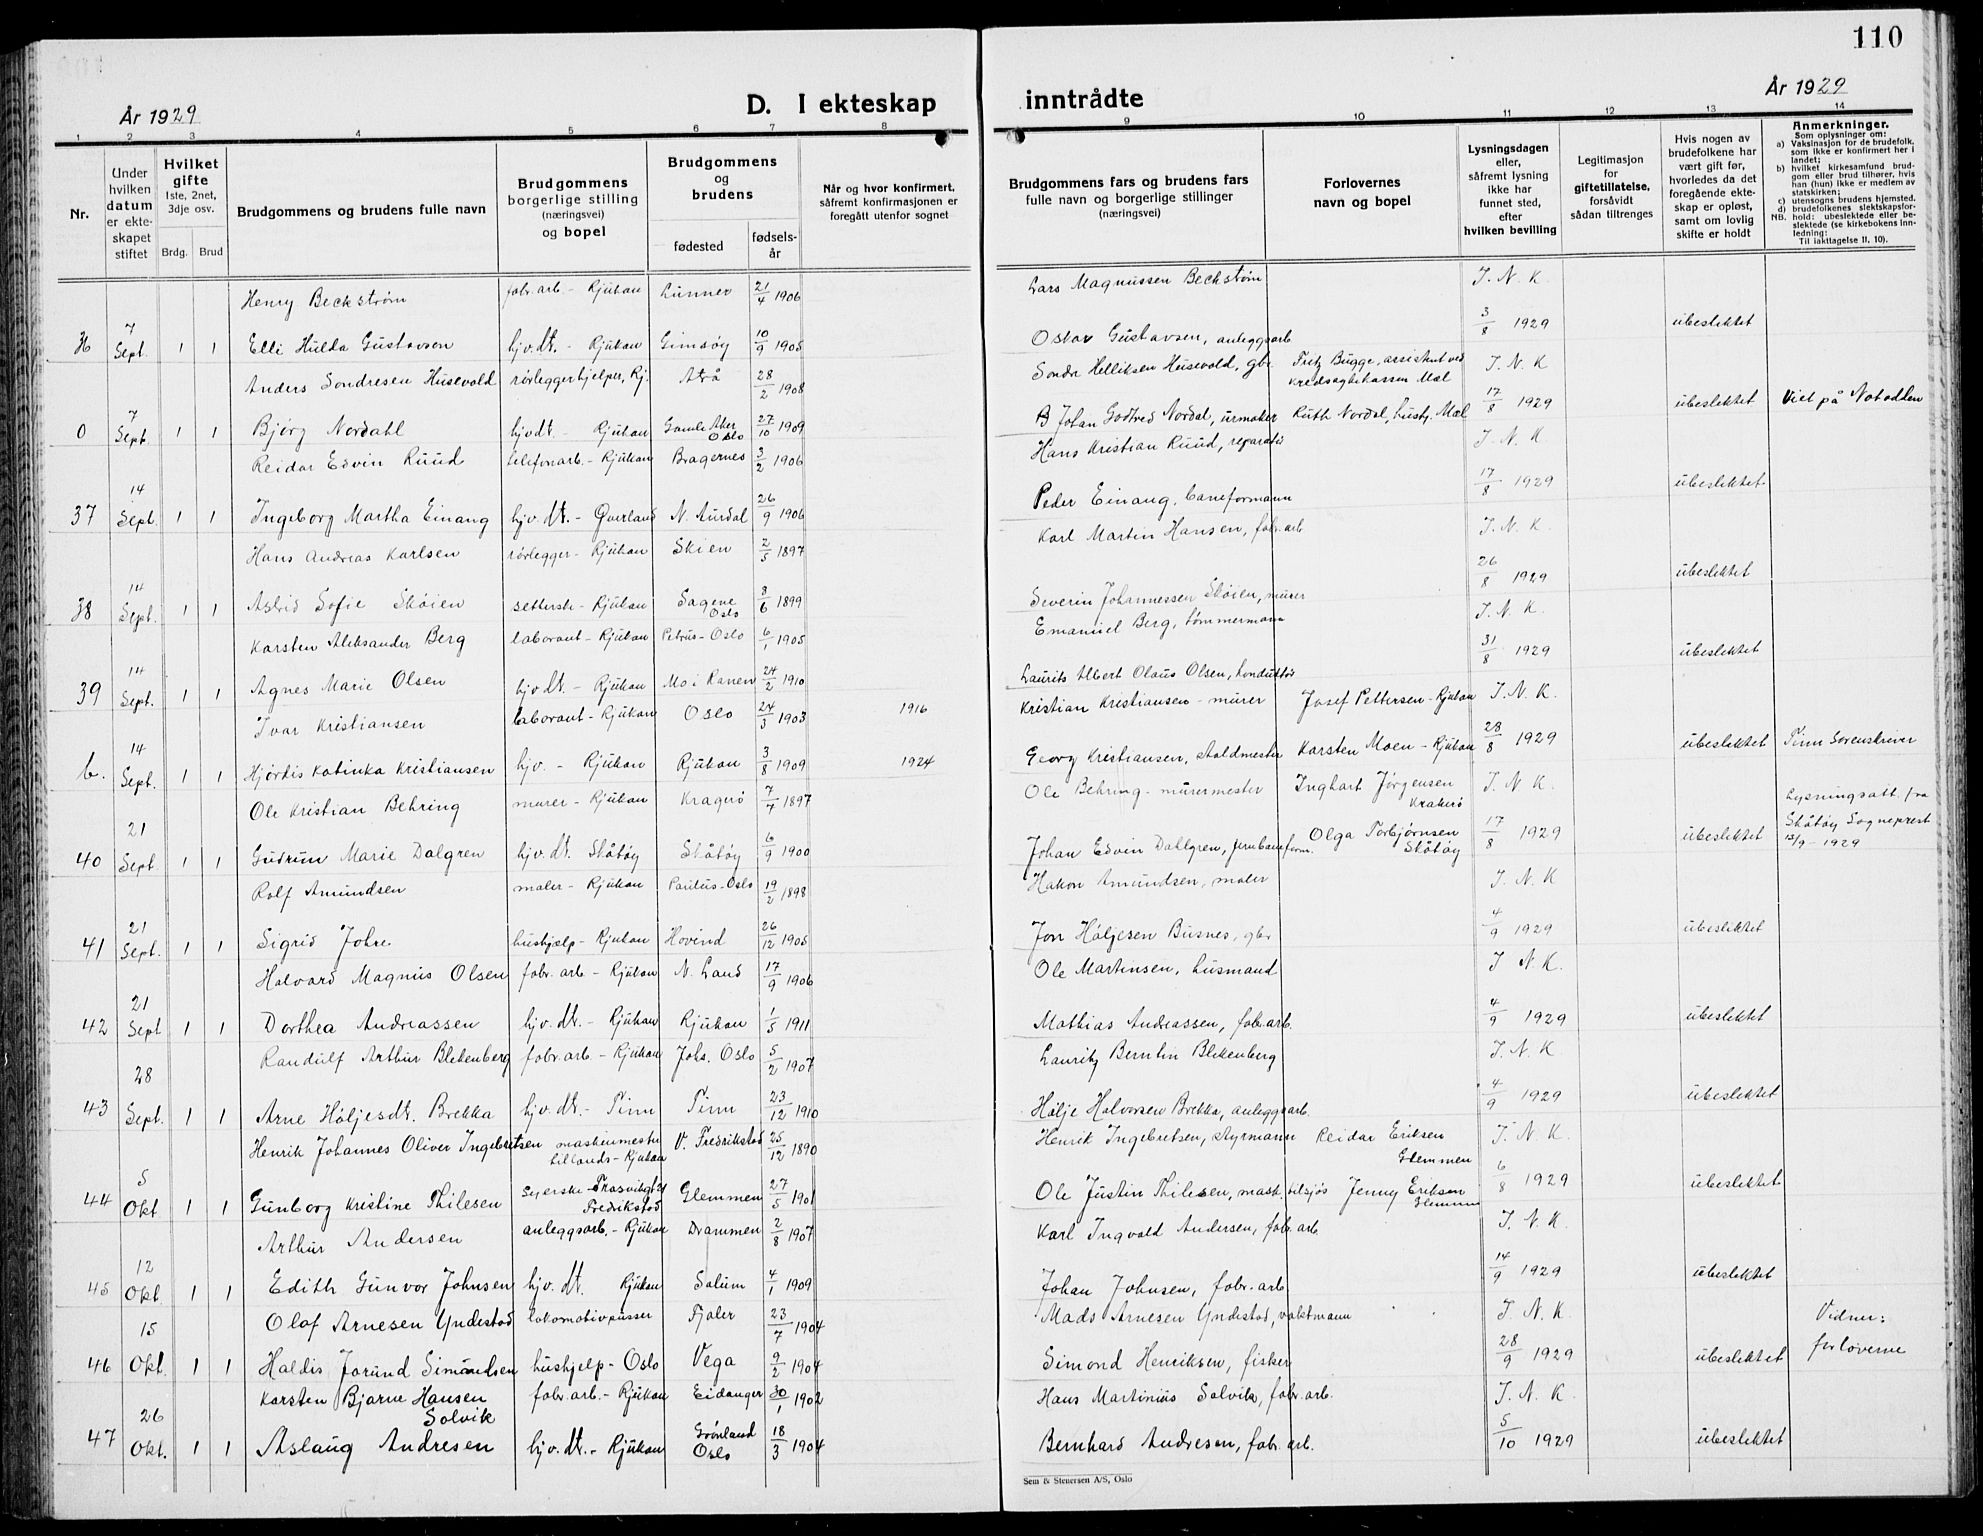 110
År 1929
D. I ekteskap
inntrådte
År 1929
1 2 3 4 5 6 7 8 9 10 11 12 13 14
Nr.
Under hvilken datum er ekteskapet stiftet
Hvilket gifte
1ste, 2net, 3dje osv.
Brdg. Brud
Brudgommens og brudens fulle navn
Brudgommens borgerlige stilling (næringsvei) og bopel
Brudgommens og brudens
fødested
fødselsår
Når og hvor konfirmert, såfremt konfirmasjonen er foregått utenfor sognet
Brudgommens fars og brudens fars fulle navn og borgerlige stillinger (næringsvei)
Forlovernes navn og bopel
Lysningsdagen eller, såfremt lysning ikke har funnet sted, efter hvilken bevilling
Legitimasjon for giftetillatelse, forsåvidt sådan tiltrenges
Hvis nogen av brudefolkene har vært gift før, hvorledes da det foregående ekteskap er opløst, samt om lovlig skifte er holdt
Anmerkninger.
Som oplysninger om:
a) Vaksinasjon for de brudefolk, som ikke er konfirmert her i landet;
b) hvilket kirkesamfund brudgom eller brud tilhører, hvis han (hun) ikke er medlem av statskirken;
c) utensogns brudens hjemsted.
d) brudefolkenes slektskapsforhold: ubeslektede eller beslektede (se kirkebokens innledning:
NB.
Til iakttagelse II, 10).
Henry Beckstrøm fabr.arb. - Rjukan Lunner 21/4 1906 Lars Magnussen Beckstrøm J. N. K.
36 7 Sept. 1 1 Elli Hulda Gustavsen hjv.dt. - Rjukan Gimsøy 10/9 1905 Oskar Gustavsen, anleggsarb 3/8 1929 ubeslektet
Anders Sondresen Husevold rørleggerhjelper, Rj. Atrå 28/2 1908 Sondre Helliksen Husevold, gbr. Fritz Bugge, assistent ved Kredsagbekassen Mæl J. N. K
0 7 Sept. 1 1 Bjørg Nordahl hjvdt. - Rjukan Gamle Aker Oslo 27/10 1909 B Johan Godtfred Nordal, urmaker Ruth Nordal, hustr. Mæl 17/8 1929 ubeslektet Viet på Notodden
Reidar Edvin Ruud telefonarb. - Rjukan Bragernes 3/2 1906 Hans Kristian Ruud, reparatør J. N. K
37 14 Sept. 1 1 Ingeborg Martha Einang hjv. dt. - Øverland N. Aurdal 26/9 1906 Peder Einang, baneformann 17/8 1929 ubeslektet
Hans Andreas Karlsen rørlegger - Rjukan Skien 2/5 1897 Karl Martin Hansen, fabr. arb J. N. K.
38 14 Sept. 1 1 Astrid Sofie Skøien setterske - Rjukan Sagene Oslo 8/6 1899 Severin Johannessen Skøien, murer 26/8 1929 ubeslektet
Karsten Aleksander Berg laborant - Rjukan Petrus - Oslo 6/1 1905 Emanuel Berg, tømmermann J. N. K.
39 14 Sept. 1 1 Agnes Marie Olsen hjv.dt. - Rjukan Mo i Ranen 24/2 1910 Laurits Albert Olaus Olsen, konduktør 31/8 1929 ubeslektet
Ivar Kristiansen laborant - Rjukan Oslo 24/3 1903 1916 Kristian Kristiansen - murer Josef Pettersen - Rjukan J. N. K.
b. 14 Sept. 1 1 Hjørdis Katinka Kristiansen hjv. - Rjukan Rjukan 3/8 1909 1924 Georg Kristiansen, staldmester Karsten Moen - Rjukan 28/8 1929 ubeslektet Tinn Sorenskriver
Ole Kristian Behring murer - Rjukan Kragerø 7/7 1897 Ole Behring - murermester Inghart Jørgensen Krakerø J. N K.
40 21 Sept 1 1 Gudrun Marie Dalgren hjv. dt. Skåtøy Skåtøy 6/9 1900 Johan Edvin Dahlgren, jernbaneform. Olga Torbjørnsen Skåtøy 17/8 1929 ubeslektet Lysningsatt. fra Skåtøy Sogneprest 13/9 - 1929
Rolf Amundsen maler - Rjukan Paulus - Oslo 19/2 1898 Hakon Amundsen, maler J. N. K
41 21 Sept. 1 1 Sigrid Johre hushjælp - Rjukan Hovind 26/12 1905 Jon Høljesen Busnes, gbr 4/9 1929 ubeslektet
Halvard Magnus Olsen fabr. arb - Rjukan N. Land 17/9 1906 Ole Martinsen, husmand J N. K.
42 21 Sept 1 1 Dorthea Andreassen hjv. dt. - Rjukan Rjukan 1/5 1911 Mathias Andreassen, fabr.arb. 4/9 1929 ubeslektet
Randulf Arthur Blekenberg fabr.arb - Rjukan Johs. Oslo 5/2 1907 Lauritz Berntin Blekenberg J. N. K.
43 28 Sept. 1 1 Arne Høljesdt. Brekka hjv. dt. - Tinn Tinn 23/12 1910 Hølje Halvorsen Brekka, anleggsarb. 4/9 1929 ubeslektet
Henrik Johannes Oliver Ingebretsen maskinmester - Rjukan V. Fredrikstad 25/12 1890 Henrik Ingebretsen, styrmann Reidar Eriksen Glemmen J. N. K.
44 5 Okt 1 1 Gunborg Kristine Thilesen Syerske - Fredrikstad Glemmen 27/5 1901 Ole Justin Thilesen, mask. Jenny Eriksen Glemmen 6/8 1929 ubeslektet
Arthur Andersen anleggsarb. - Rjukan Drammen 2/8 1907 Karl Ingvald Andersen, fabr. arb. J. N. K.
45 12 Okt. 1 1 Edith Gunvor Johnsen hjv. dt. Rjukan Solum 4/1 1909 Johan Johnsen, fabr. arb 14/9 1929 ubeslektet
Olaf Arnesen Yndestad lokomotivpusser Fjaler 23/7 1904 Mads Arnesen Yndestad, vaktmann J. N. K. Vidner:
46 15 Okt. 1 1 Haldis Jorund Simondsen hushjelp - Oslo Vega 9/2 1904 Simond Henriksen, fisker 28/9 1929 ubeslektet forloverne
Karsten Bjarne Hansen Solvik fabr. arb. - Rjukan Eidanger 30/1 1902 Hans Martinius Solvik, fabr. arb. J. N. K.
47 26 Okt. 1 1 Aslaug Andresen hjv. dt. - Rjukan Grønland Oslo 18/3 1904 Bernhard Andresen, fabr. arb. 5/10 1929 ubeslektet
Sem & Stenersen A/S, Oslo